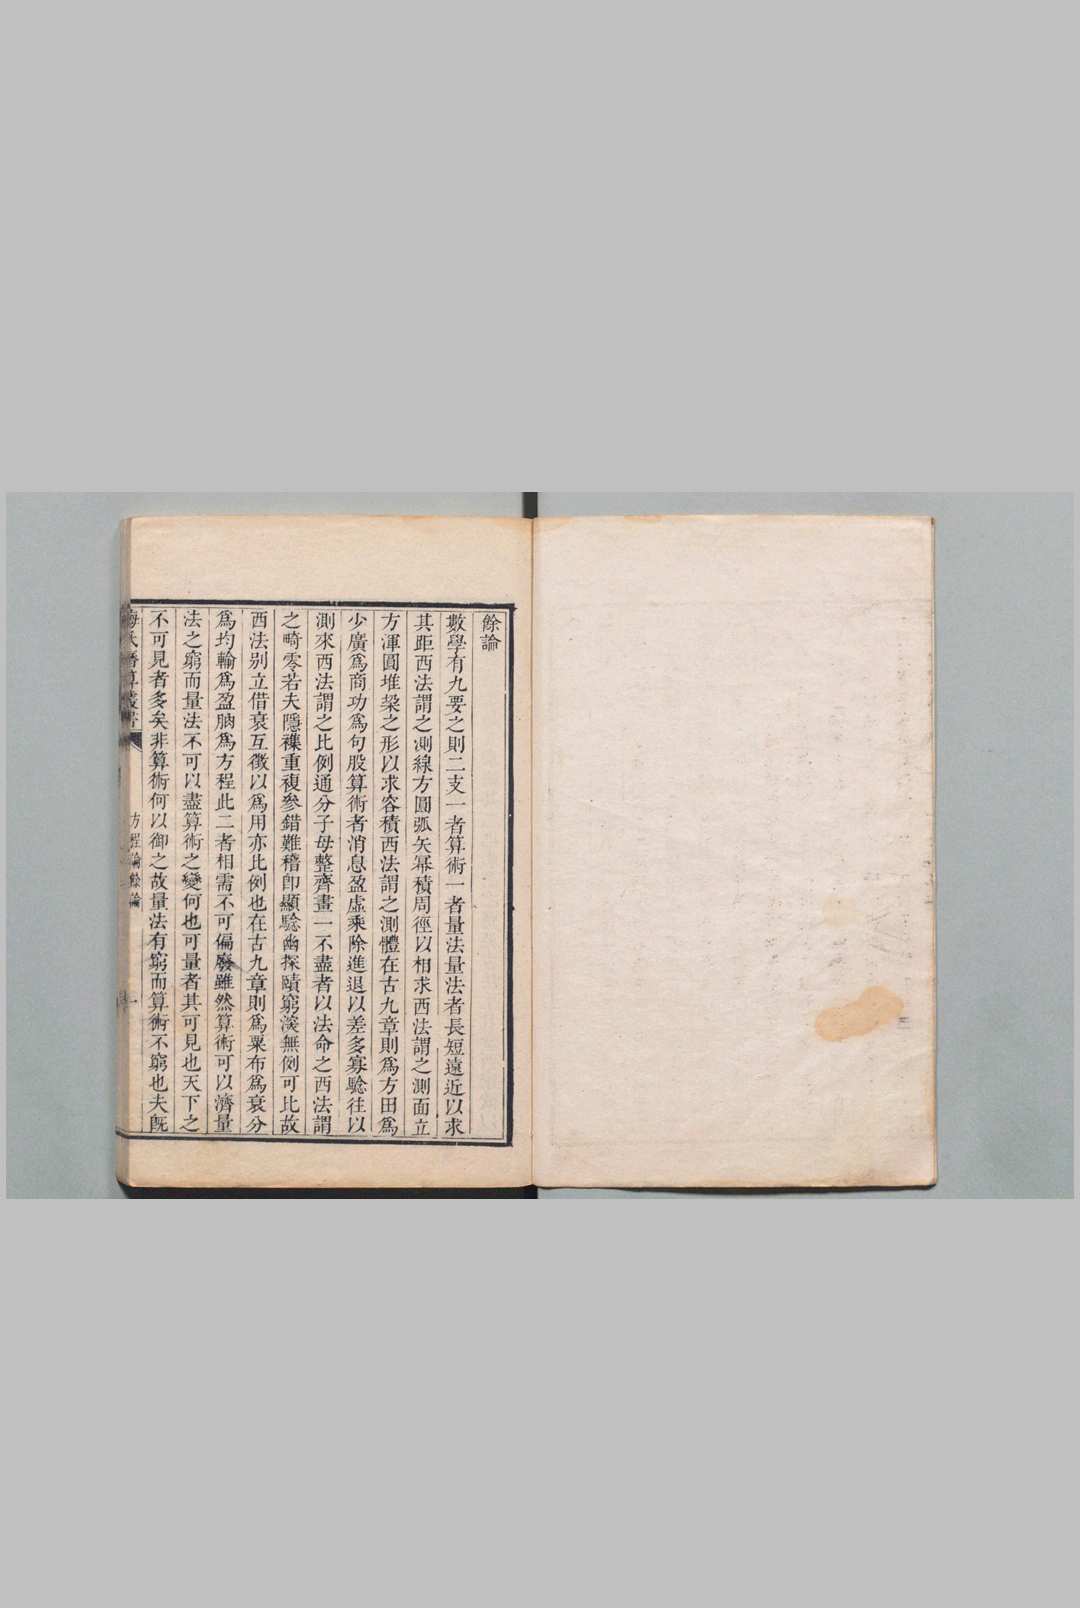 餘論
數學有九要之則二支一者算術一者量法量法者長短遠近以求
其距西法謂之測線方圓弧矢冪積周徑以相求西法謂之測面立
方渾圓堆垜之形以求容積西法謂之測體在古九章則爲方田爲
少廣爲商功爲句股算術者消息盈虛乘除進退以差多寡驗往以
測來西法謂之比例通分子母整齊畫一不盡者以法命之西法謂
之畸零若夫隱襍重複參錯難稽卽顯驗幽探賾窮深無例可比故
西法别立借衰互徵以爲用亦比例也在古九章則爲粟布爲衰分
爲均輸爲盈朒爲方程此二者相需不可偏廢雖然算術可以濟量
法之窮而量法不可以盡算術之變何也可量者其可見也天下之
不可見者多矣非算術何以御之故量法有窮而算術不窮也夫旣
方程論餘論
一